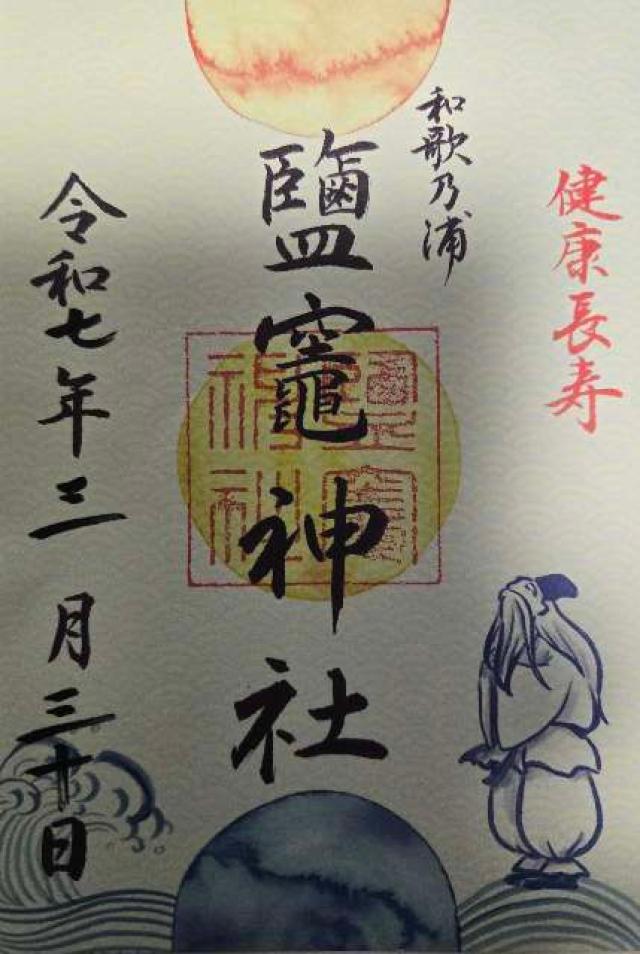 健康長寿
和歌乃浦
鹽竈神社
令和七年三月三十日